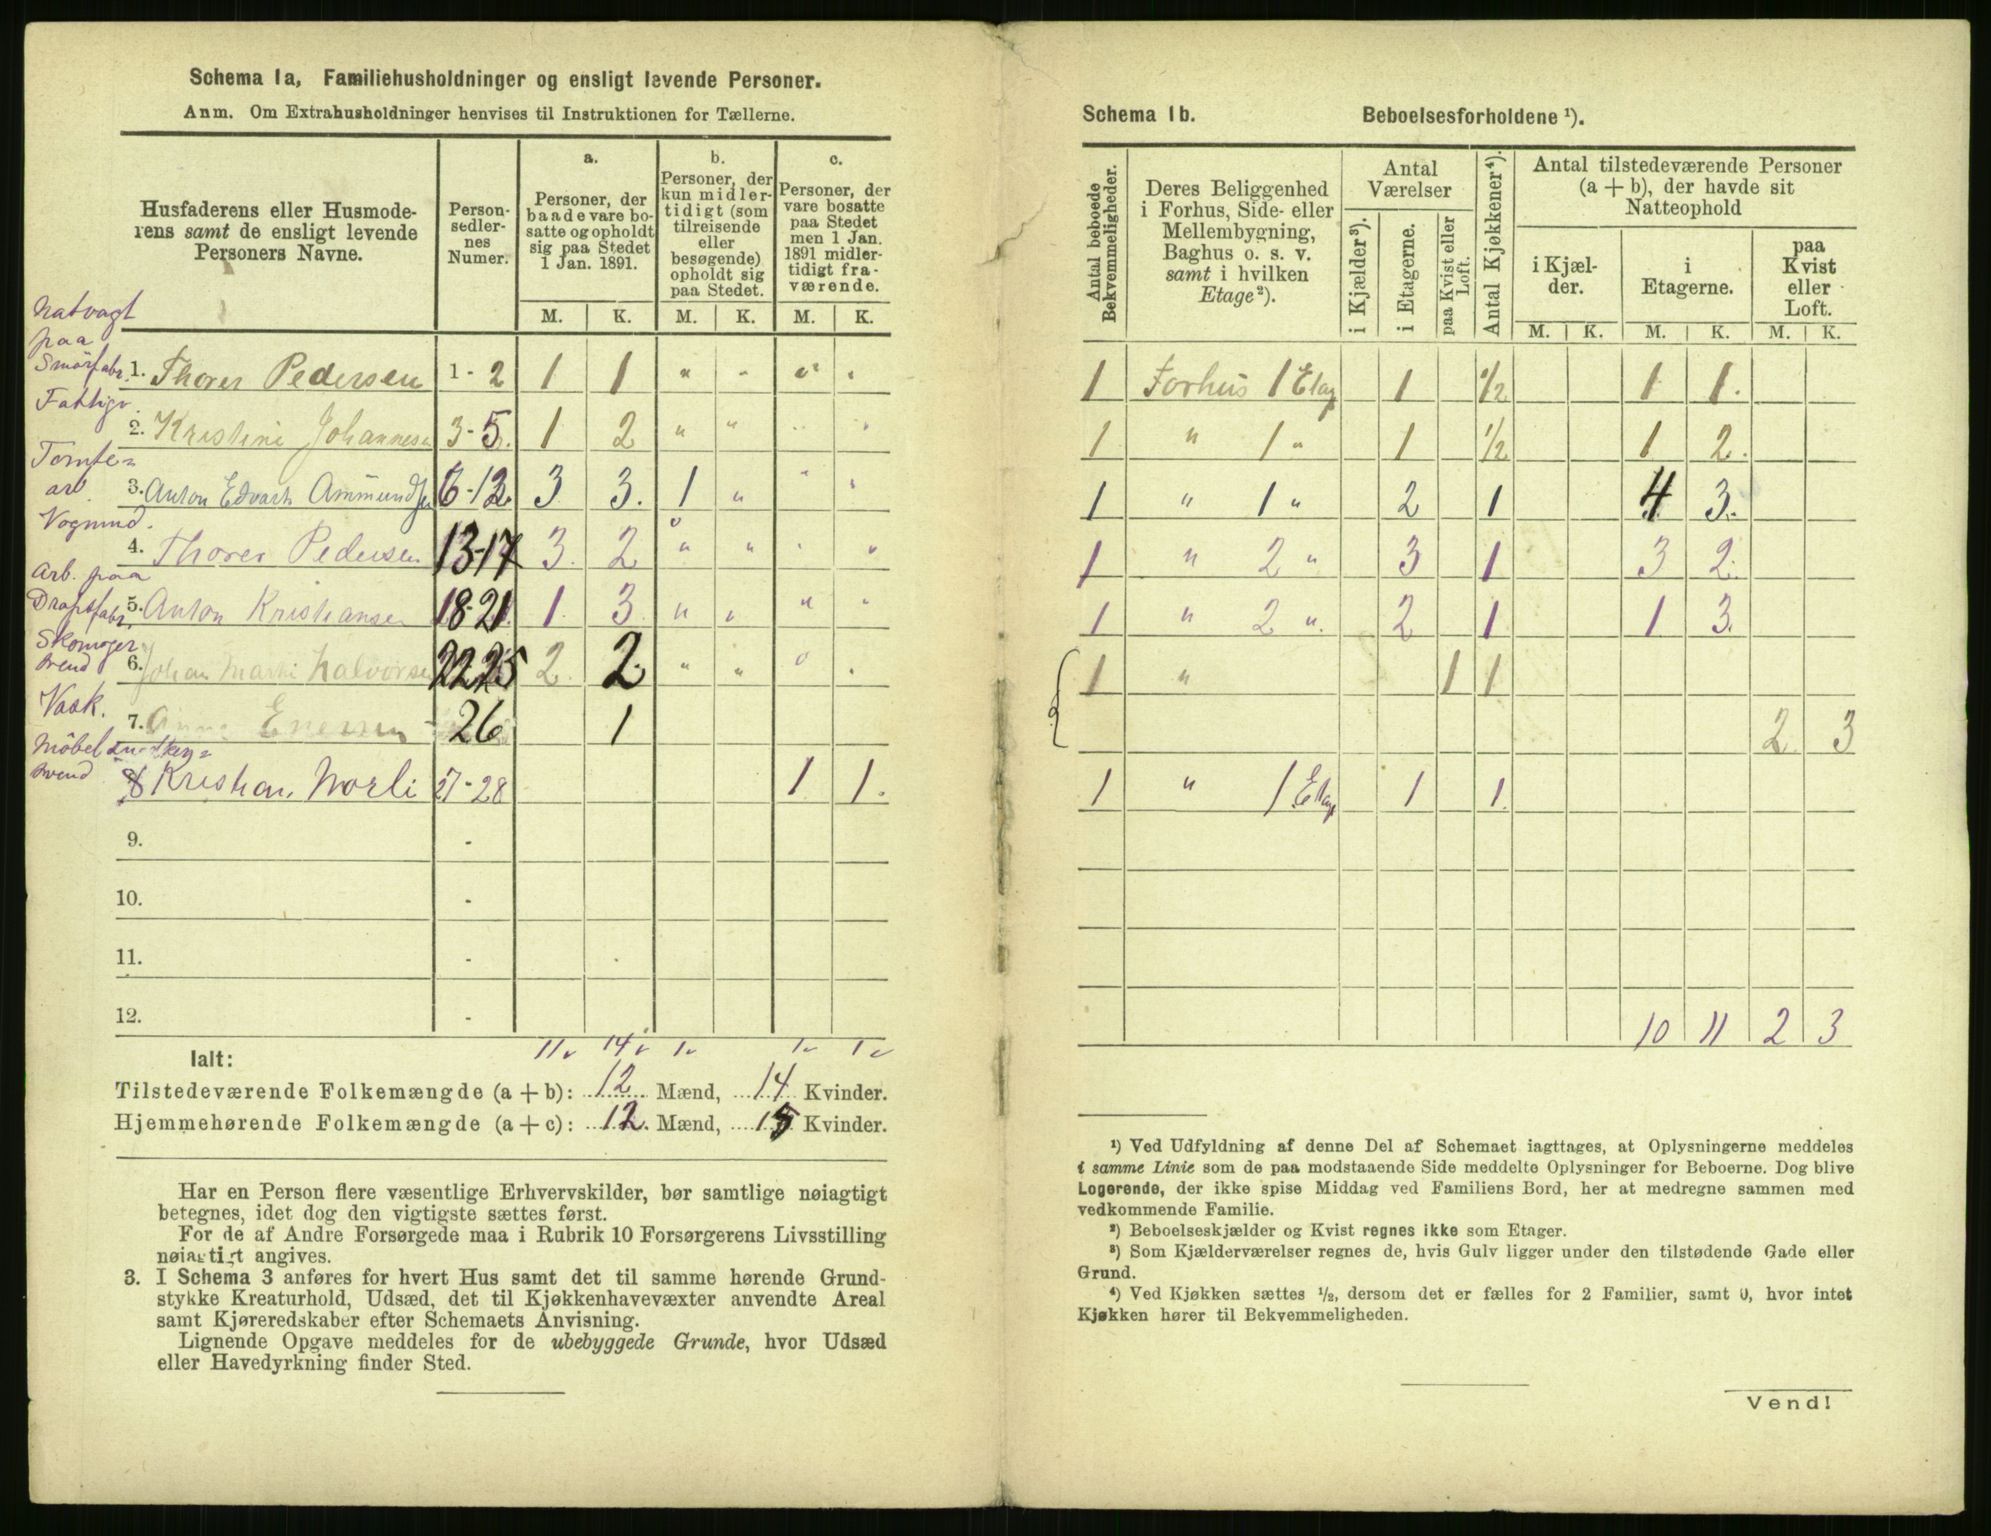 Schema 1a, Familiehusholdninger og ensligt levende Personer.
Anm. Om Extrahusholdninger henvises til Instruktionen for Tællerne.
Husfaderens eller Husmode-
rens samt de ensligt levende
Personers Navne.
Person-
sedler-
nes
Numer.
a.
Personer, der
baade vare bo-
satte og opholdt
sig paa Stedet
1 Jan. 1891.
b.
Personer, der
kun midler-
tidigt (som
tilreisende
eller
besøgende)
opholdt sig
paa Stedet.
c.
Personer, der
vare bosatte
paa Stedet
men 1 Jan.
1891 midler-
tidigt fra-
værende.
M. K. M. K. M. K.
Natvagt
paa
Smörfabr.
1. Thorer Pedersen 1 - 2 1 1 " " " "
Fattigv.
2. Kristine Johannesen 3 - 5. 1 2 " " " "
Tomte=
arb.
3. Anton Edvart Ammundsen 6 - 12. 3 3. 1 " " "
Vognmd.
4. Thorer Pedersen 13-17 3. 2 " " " "
Arb. paa
5. Anton Kristiansen 18-21. 1. 3 " " " "
Skomager
svend
6. Johan Halvorsen 22 25 2. 2. " " " .
Vask.
7. Anna 26 1
Möbel
svend
8 Kristian Norli 27 - 28 1 1.
9. -
10. -
11. -
12. -
Ialt: 11 14 1 1 1
Tilstedeværende Folkemængde (a + b): 12 Mænd, 14 Kvinder.
Hjemmehørende Folkemængde (a + c): 12. Mænd, 15 Kvinder.
Har en Person flere væsentlige Erhvervskilder, bør samtlige nøiagtigt
betegnes, idet dog den vigtigste sættes først.
For de af Andre Forsørgede maa i Rubrik 10 Forsørgerens Livsstilling
nøiagtigt angives.
3. I Schema 3 anføres for hvert Hus samt det til samme hørende Grund-
stykke Kreaturhold, Udsæd, det til Kjøkkenhavevæxter anvendte Areal
samt Kjøreredskaber efter Schemaets Anvisning.
Lignende Opgave meddeles for de ubebyggede Grunde, hvor Udsæd
eller Havedyrkning finder Sted.
Schema 1b. Beboelsesforholdene ¹).
Antal beboede
Bekvemmeligheder.
Deres Beliggenhed
i Forhus, Side- eller
Mellembygning,
Baghus o. s. v.
samt i hvilken
Etage²).
Antal
Værelser
i Kjælder³).
i Etagerne.
paa Kvist eller
Loft.
Antal Kjøkkener⁴).
Antal tilstedeværende Personer
(a + b), der havde sit
Natteophold
i Kjæl-
der.
i
Etagerne.
paa
Kvist
eller
Loft.
M. K. M. K. M. K.
1 Forhus 1 Etag 1 1/2 1 1.
1 " 1 " 1 1/2 1 2.
1 " 1 " 2 1 4 3.
1 " 2 " 3 1 3 2.
1 " 2 " 2 1 1 3.
1 " 1 1
2 3
1 " 1 Etag 1 1.
10 11 2 3
¹) Ved Udfyldning af denne Del af Schemaet iagttages, at Oplysningerne meddeles
i samme Linie som de paa modstaaende Side meddelte Oplysninger for Beboerne. Dog blive
Logerende, der ikke spise Middag ved Familiens Bord, her at medregne sammen med
vedkommende Familie.
²) Beboelseskjælder og Kvist regnes ikke som Etager.
³) Som Kjælderværelser regnes de, hvis Gulv ligger under den tilstødende Gade eller
Grund.
⁴) Ved Kjøkken sættes ½, dersom det er fælles for 2 Familier, samt 0, hvor intet
Kjøkken hører til Bekvemmeligheden.
Vend!